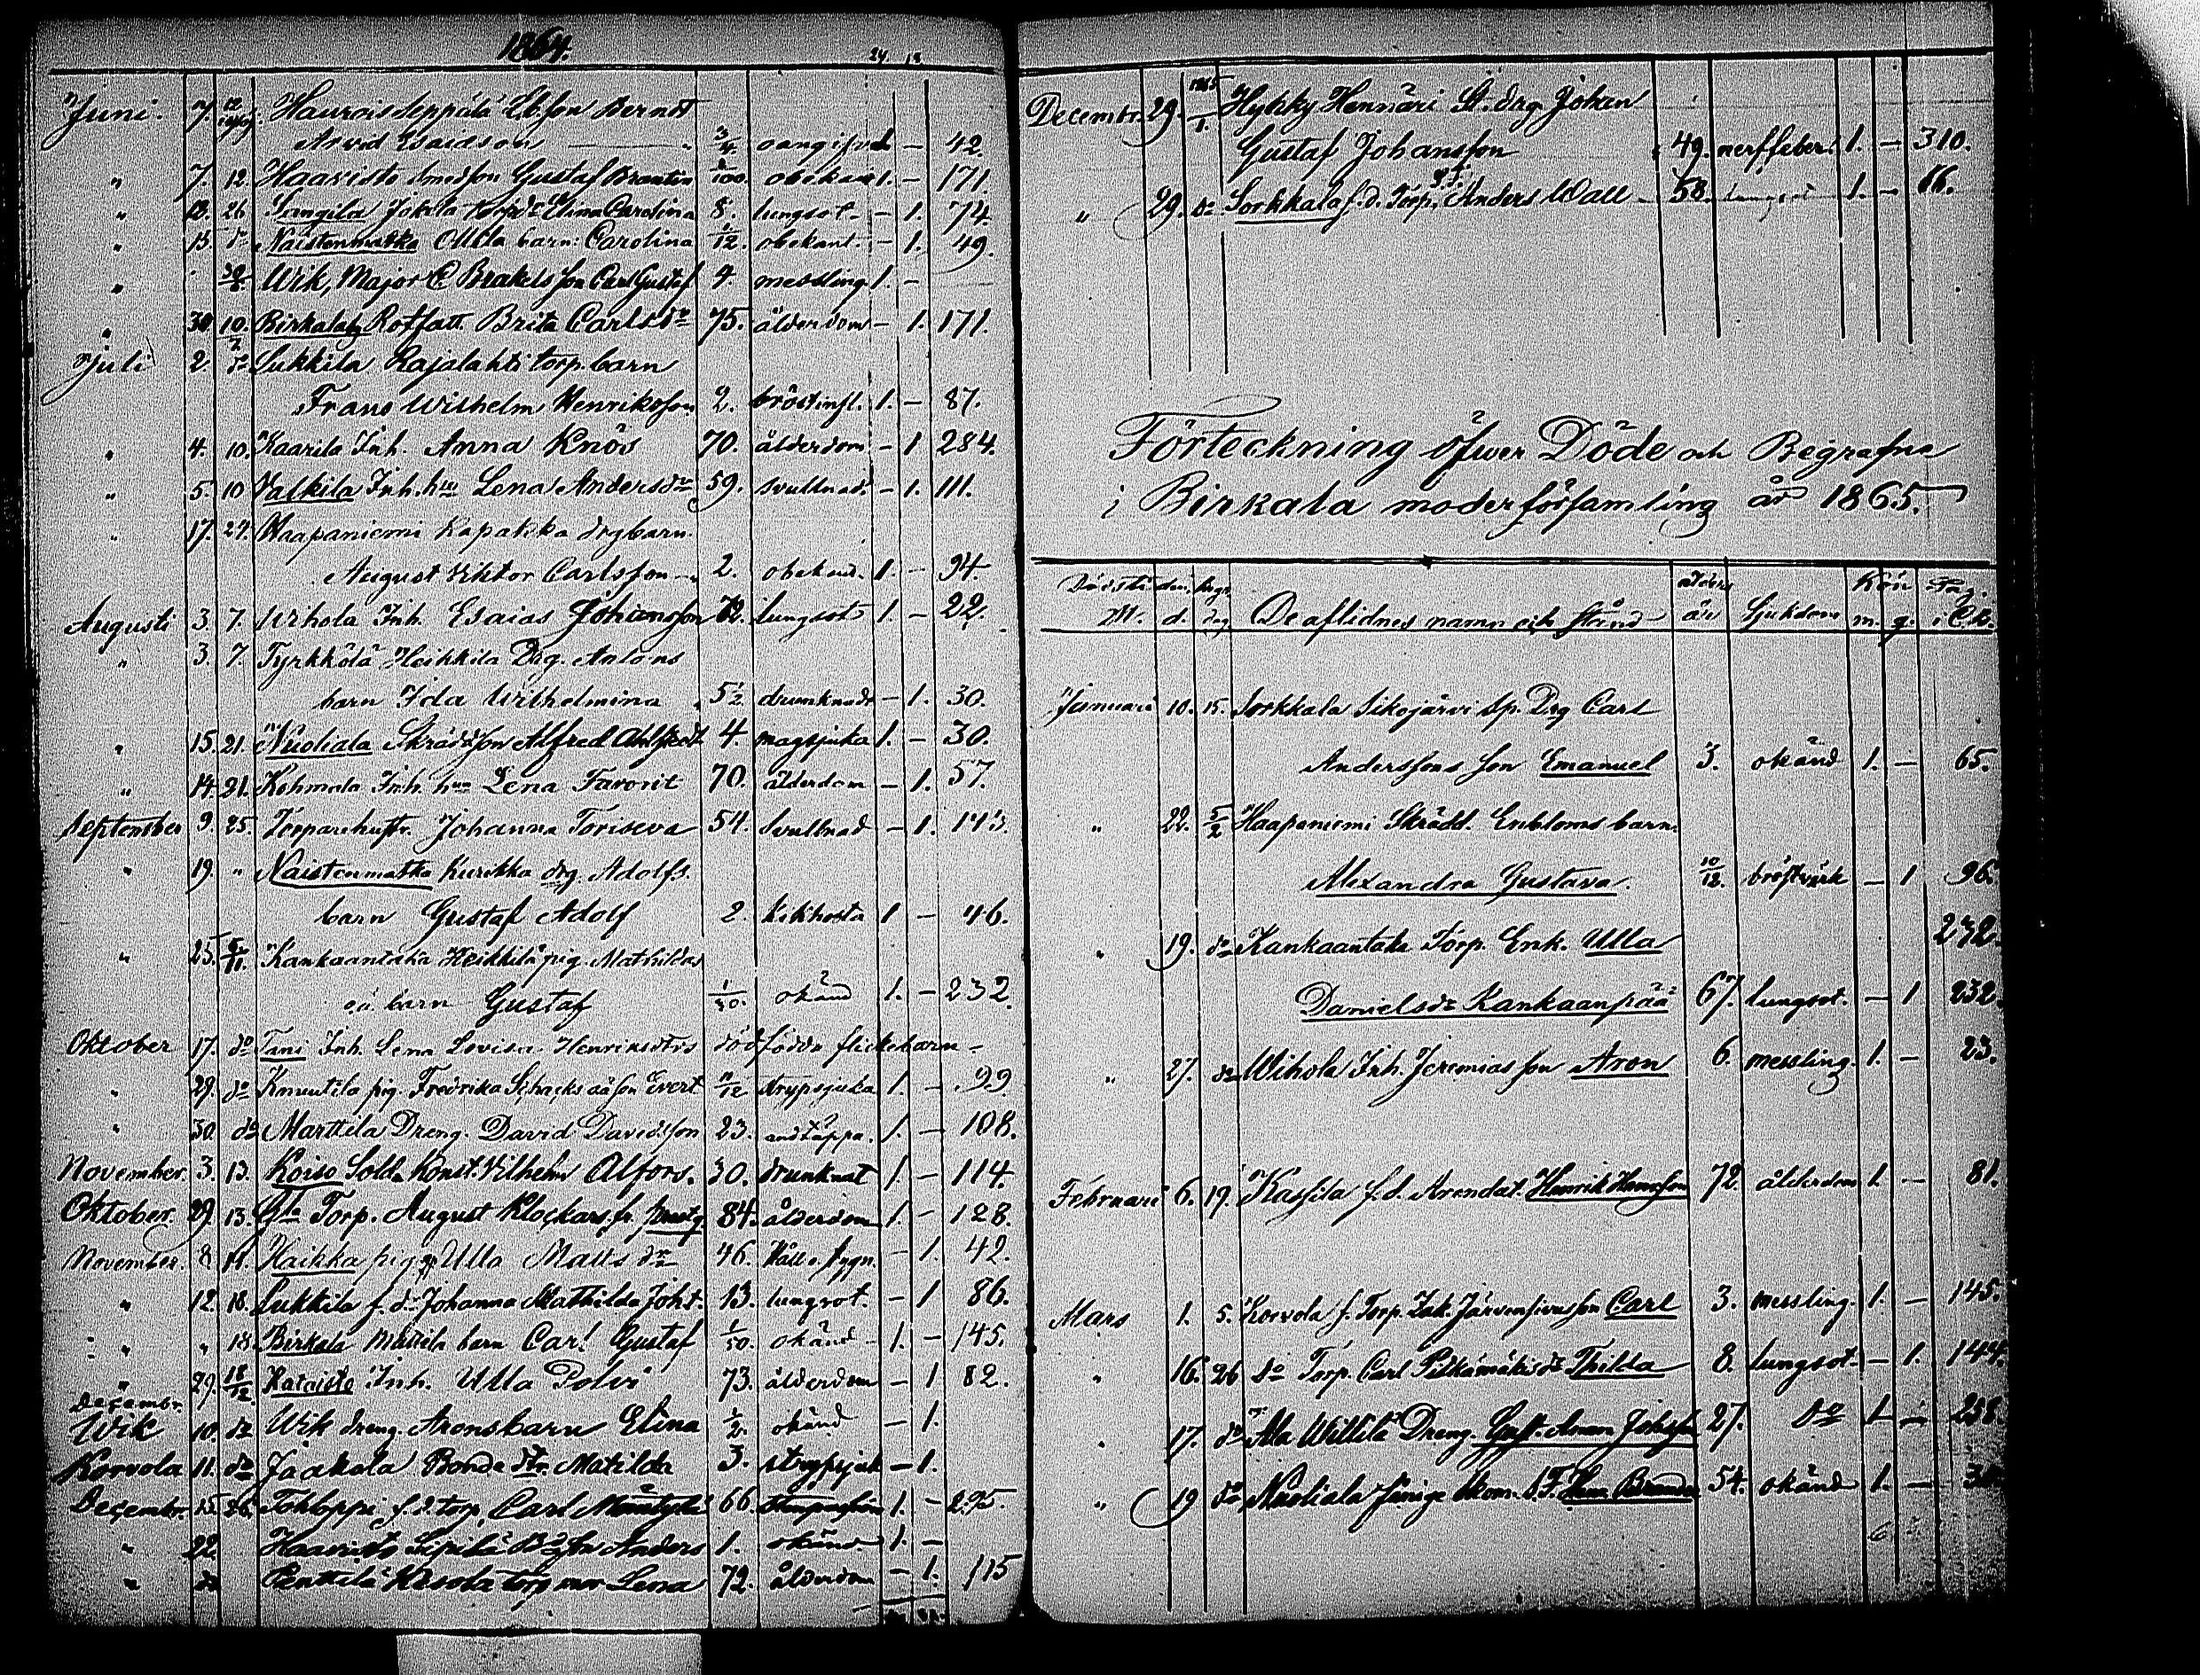 1864.
24 18
Juni. 7. 12 Haurois Seppälä Lb. son Bernt
Arvid Esaieson 3/4 oangifvet 1 — 42.
" 7. 12. Haaristo Gustaf Brontin obekant 1. — 171.
" 13. 26 Jokela Elina Carolina 8. lungsot — 1. 74.
" 13. do Naistenmatka Ottila barn: Carolina /12. obekant. — 1. 49.
" Wik, Major C. Brakels son Carl Gustaf 4. messling. 1. —
" 30. 10/7 Birkala Rotfatt. Brita Carlsdr 75. ålderdom — 1. 171.
Juli 2. do Lukkila Rajalahti torp. barn
Frans Wilhelm Henriksson 2. bröstinfl. 1. — 87.
" 4. 10. Kaarila Inh. Anna Knös 70. ålderdom — 1 284.
" 5. 10 Valkila Inh. hu Lena Andersdr 59. svullnad. — 1. 111.
" 17. 24. Haapaniemi Kapakka drg barn.
August Viktor Carlsson 2. obekand. 1. — 94.
Augusti 3. 7. Wihola Inh. Esaias Johansson 72. lungsot 1. — 22.
" 3. 7. Tyrkkölä Heikkila Drg. Antons
barn Ida Wilhelmina 5 1/2 drunknade — 1. 30.
" 15. 21. Nuoliala Skrädd. son Alfred Ahlstedt 4. magsjuka 1. — 30.
" 14. 21. Kohmala Inh. hu Lena Favorit 70. ålderdom — 1. 57.
September 9. 25. Torparehustr. Johanna Toriseva 54. Svullnad — 1. 143.
" 19. " Naistenmatka Kurikka drg. Adolfs
barn Gustaf Adolf 2. kikhosta 1 — 46.
" 25. Kankaantaka Heikkilä pig. Mathildas
oä. barn Gustaf okänd 1. — 232.
Oktober 17. do Tani Inh. Lena Lovisa Henriksdtrs dödfödda flickebarn —
" 29. do Knuutila pig. Fredrika Schacks oä son Evert 11/12 strypsjuka 1. — 99.
" 30. do Marttila Dreng. David Davidsson 23. andtäppa. 1. — 108.
November. 3. 13. Koiso Sold. Konst. Vilhelm Alfors. 30. drunknat 1. — 114.
Oktober. 29. 13. Torp. August Klockars fr. 84. ålderdom 1. — 128.
November. 8 14. Haikka piga Ulla Matts dr 46. Håll o stygn. — 1. 42.
" 12. 18. Lukkila f. d. Johanna Mathilda Joh. 13. lungsot. — 1 86.
" " 18. Birkala Mattila barn Carl Gustaf okänd 1. — 145.
" 29. 18/12 Hataisto Inh. Ulla Polvi 73. ålderdom — 1 82.
Decembr.
Wik 10. do Wik dreng. Arons barn Elina 1/2 okänd — 1.
Korvola 11. do Jaakola Bonde dtr. Matilda 3. strypsjuk — 1.
Decembr. 15. 26. Tohloppi f. d. torp. Carl 66. 1. — 295.
" 22. Haaristo son Anders 1. okänd 1. —
" do Penttilä Kesola torp. mor Lena 72. ålderdom — 1. 115
Decembr. 29. 1865/1. Hyhky Hennäri St. drg Johan
Gustaf Johansson 49. nerffeber. 1. — 310.
" 29. do Sorkkala f. d. Torp. Anders Wall 58. lungsot 1. — 66.
Förteckning öfwer Döde och Begrafna
i Birkala moderförsamling år 1865.
Dödsti den. begr. ålders Kön Pag.
M. d. dag De aflidnes namn och stånd år Sjukdom m. q. i C.B.
Januari 10. 15. Sorkkala Sikojärvi Sp. Drg Carl
Anderssons son Emanuel 3. okänd 1. — 65.
" 22. 5/2 Haapaniemi Skrädd. Enbloms barn
Alexandra Gustava. 10/12. bröstvärk — 1 96.
" 19. do Kankaantaka Torp. Enk. Ulla 232.
Danielsdr Kankaanpää 67. lungsot. — 1 232.
" 27. do Wihola Inh. Jeremias son Aron 6. messling. 1. — 23.
Februari 6. 19. Kassila f. d. Arendat. Henrik Hansson 72. ålderdom 1. — 81.
Mars 1. 5. Korvola f. Torp. Zak. Järvensivus son Carl 3. messling. 1. — 145.
" 16. 26 do Torp. Carl Pitkämäkis dr Thilda 8. lungsot. — 1. 144.
" 17. do Ala Willilä Dreng. Gust. Aman Johsson 27. do 1. — 258.
" 19 do Nuoliala 54. okänd 1. —